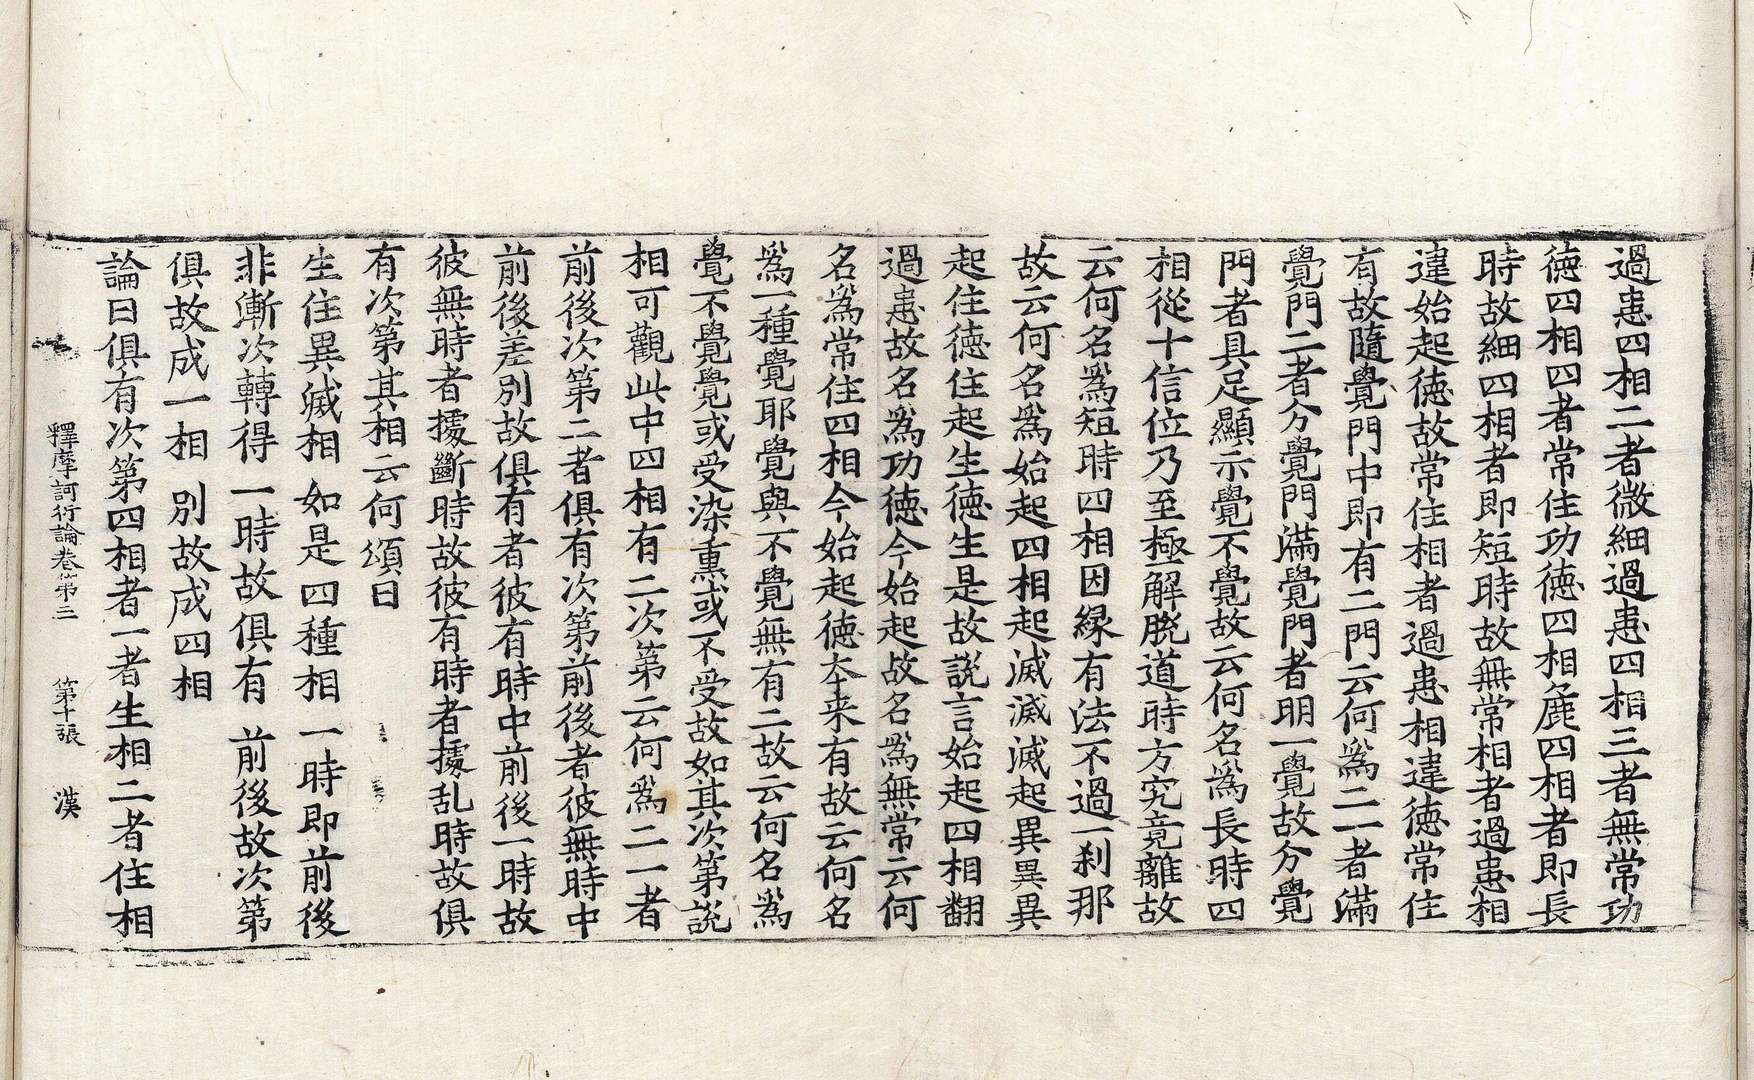 過患四相二者微細過患四相三者無常功
徳四相四者常住功徳四相麁四相者即長
時故細四相者即短時故無常相者過患相
違始起徳故常住相者過患相違徳常住
有故隨覺門中即有二門云何爲二一者滿
覺門二者分覺門滿覺門者明一覺故分覺
門者具足顯示覺不覺故云何名爲長時四
相從十信位乃至極解脱道時方究竟離故
云何名爲短時四相因縁有法不過一刹那
故云何名爲始起四相起滅滅滅起異異異
起住徳住起生徳生是故説言始起四相翻
過患故名爲功徳今始起故名爲無常云何
名爲常住四相今始起徳夲来有故云何名
爲一種覺耶覺與不覺無有二故云何名爲
覺不覺覺或受染熏或不受故如其次第説
相可觀此中四相有二次第云何爲二一者
前後次第二者俱有次第前後者彼無時中
前後差別故俱有者彼有時中前後一時故
彼無時者據斷時故彼有時者據乱時故俱
有次第其相云何頌曰
生住異滅相 如是四種相 一時即前後
非漸次轉得 一時故俱有 前後故次第
俱故成一相 別故成四相
論曰俱有次第四相者一者生相二者住相
釋摩訶衍論卷第三 第十張 漢